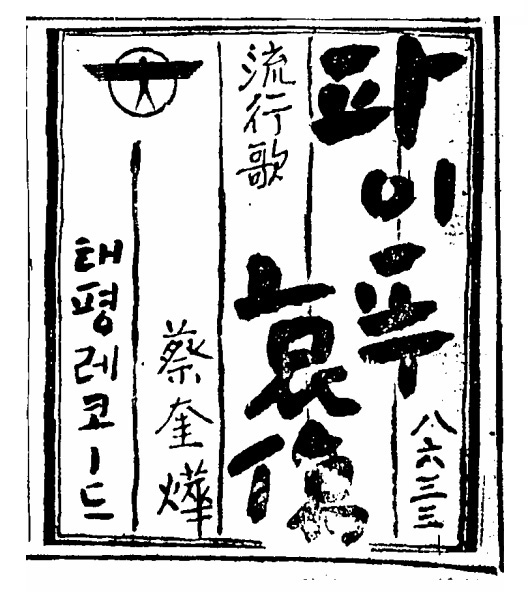 파이푸
八六三三
哀傷
流行歌
蔡奎燁
태평레코ー드